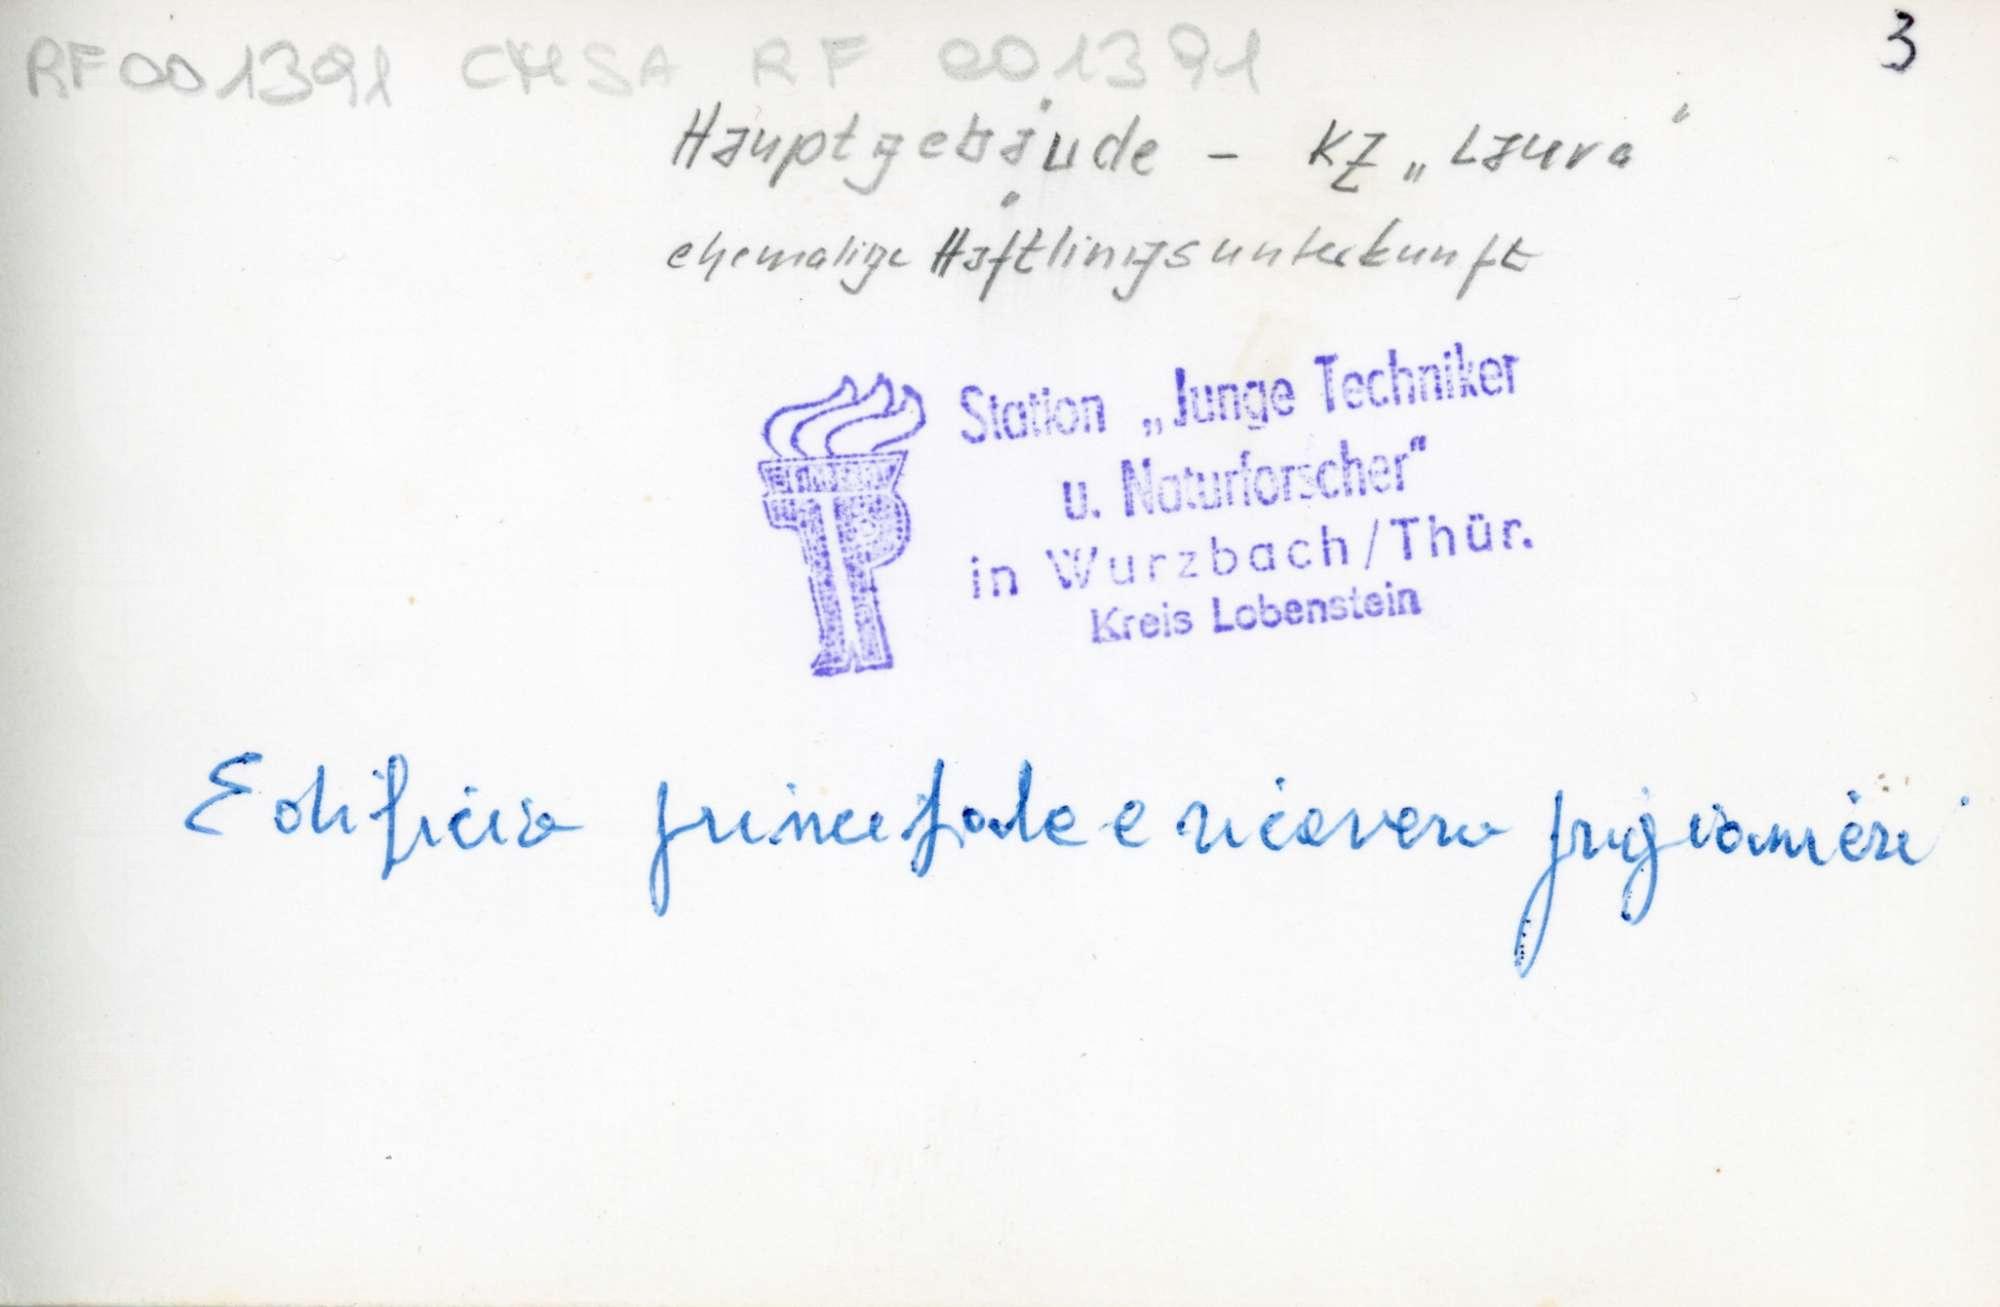 3
RF001391 CMSA RF 001391
Hauptgebäude – KZ „Laura"
ehemalige Häftlingsunterkunft
Station „Junge Techniker
u. Naturforscher"
in Wurzbach/Thür.
Kreis Lobenstein
Edificio principale e ricovero prigionieri